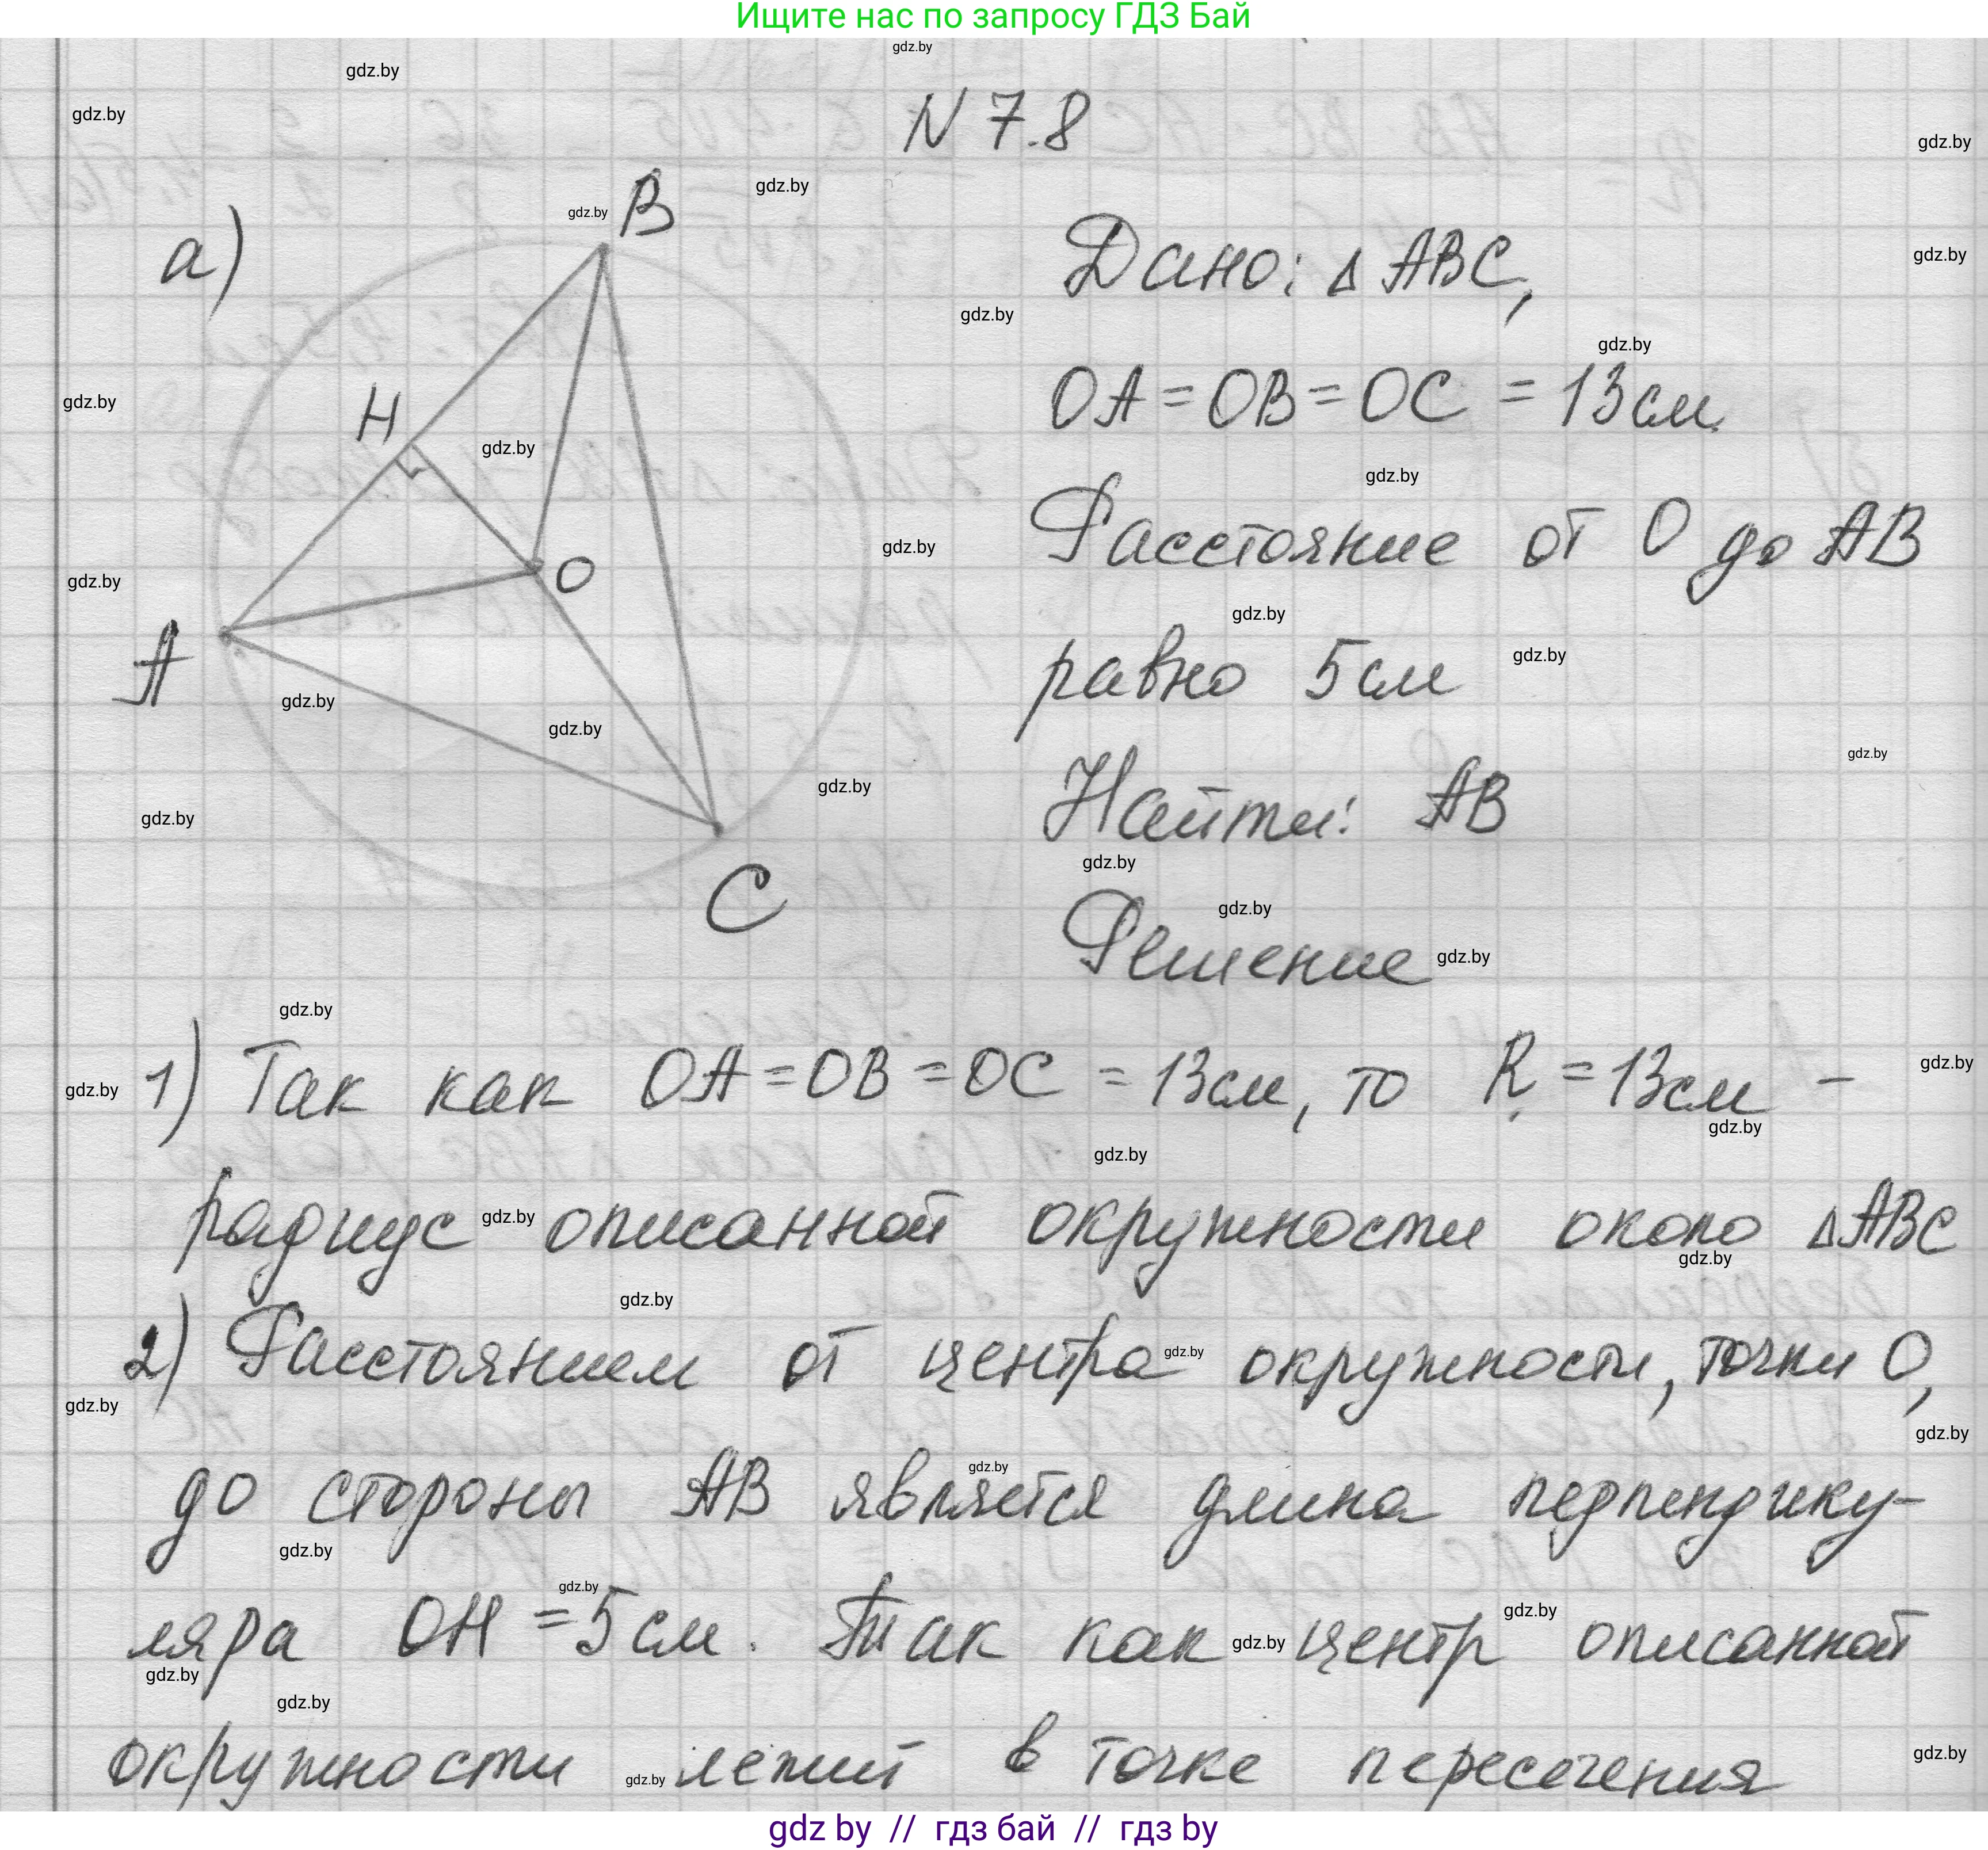 Ищите нас по запросу ГДЗ Бай
N 7.8
а)
B
H
O
A
C
Дано: Δ ABC,
OA = OB = OC = 13см.
Расстояние от O до AB
равно 5см
Найти: AB
Решение
1) Так как OA = OB = OC = 13см, то R = 13см –
радиус описанной окружности около ΔABC
2) Расстоянием от центра окружности, точки O,
до стороны AB является длина перпендику-
ляра OH = 5см. Так как центр описанной
окружности лежит в точке пересечения
gdz by // гдз бай // гдз by